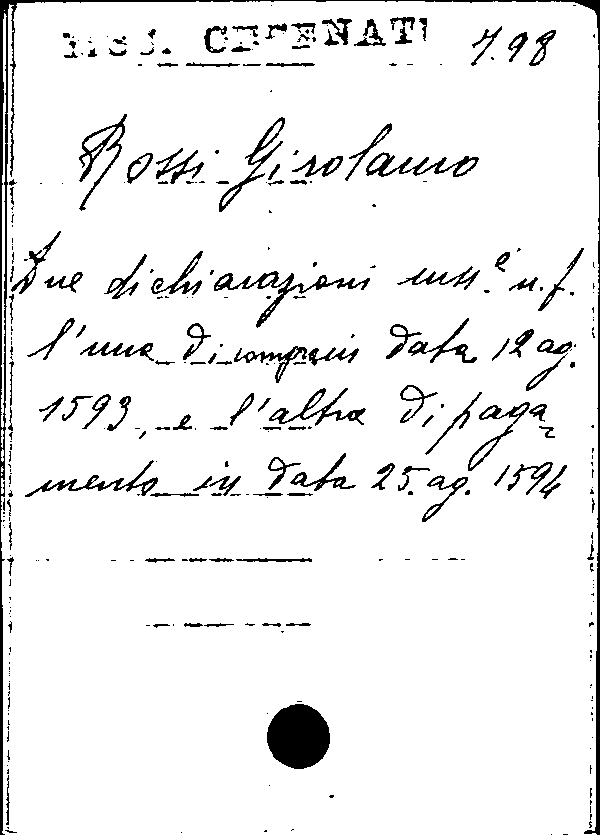 MSS. CESENATI 7.98
Rossi Girolamo
Due dichiarazioni mss.e n. f.
l'una di compra in data 12 ag.
1593, e l'altra di paga-
mento in data 25. ag. 1594